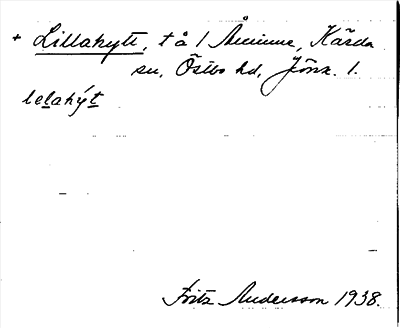 + Lillahytt, t å / Åminne, Kärda
sn, Östbo hd, Jönk. l.
lelahýt
Fritz Andersson 1938.